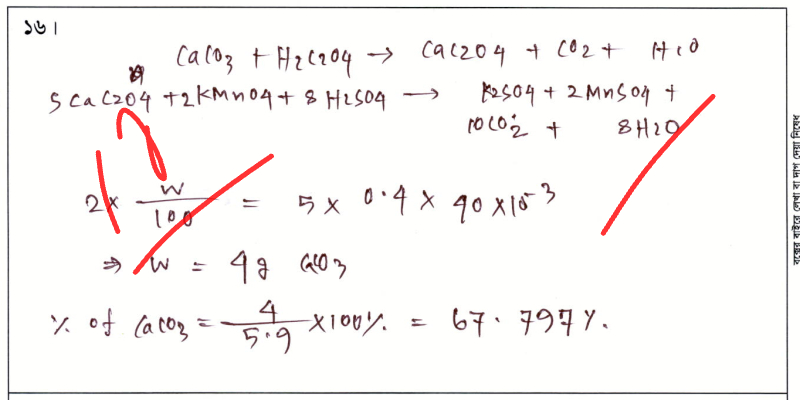 ১৬।
CaCO3 + H2C2O4 → CaC2O4 + CO2 + H2O
5CaC2O4 + 2KMnO4 + 8H2SO4 → K2SO4 + 2MnSO4 +
10CO2 + 8H2O
2 × W/100 = 5 × 0.4 × 40 × 10-3
⇒ W = 4g CaCO3
% of CaCO3 = 4/5.9 × 100% = 67.797%.
বক্সের বাইরে লেখা বা দাগ দেয়া নিষেধ